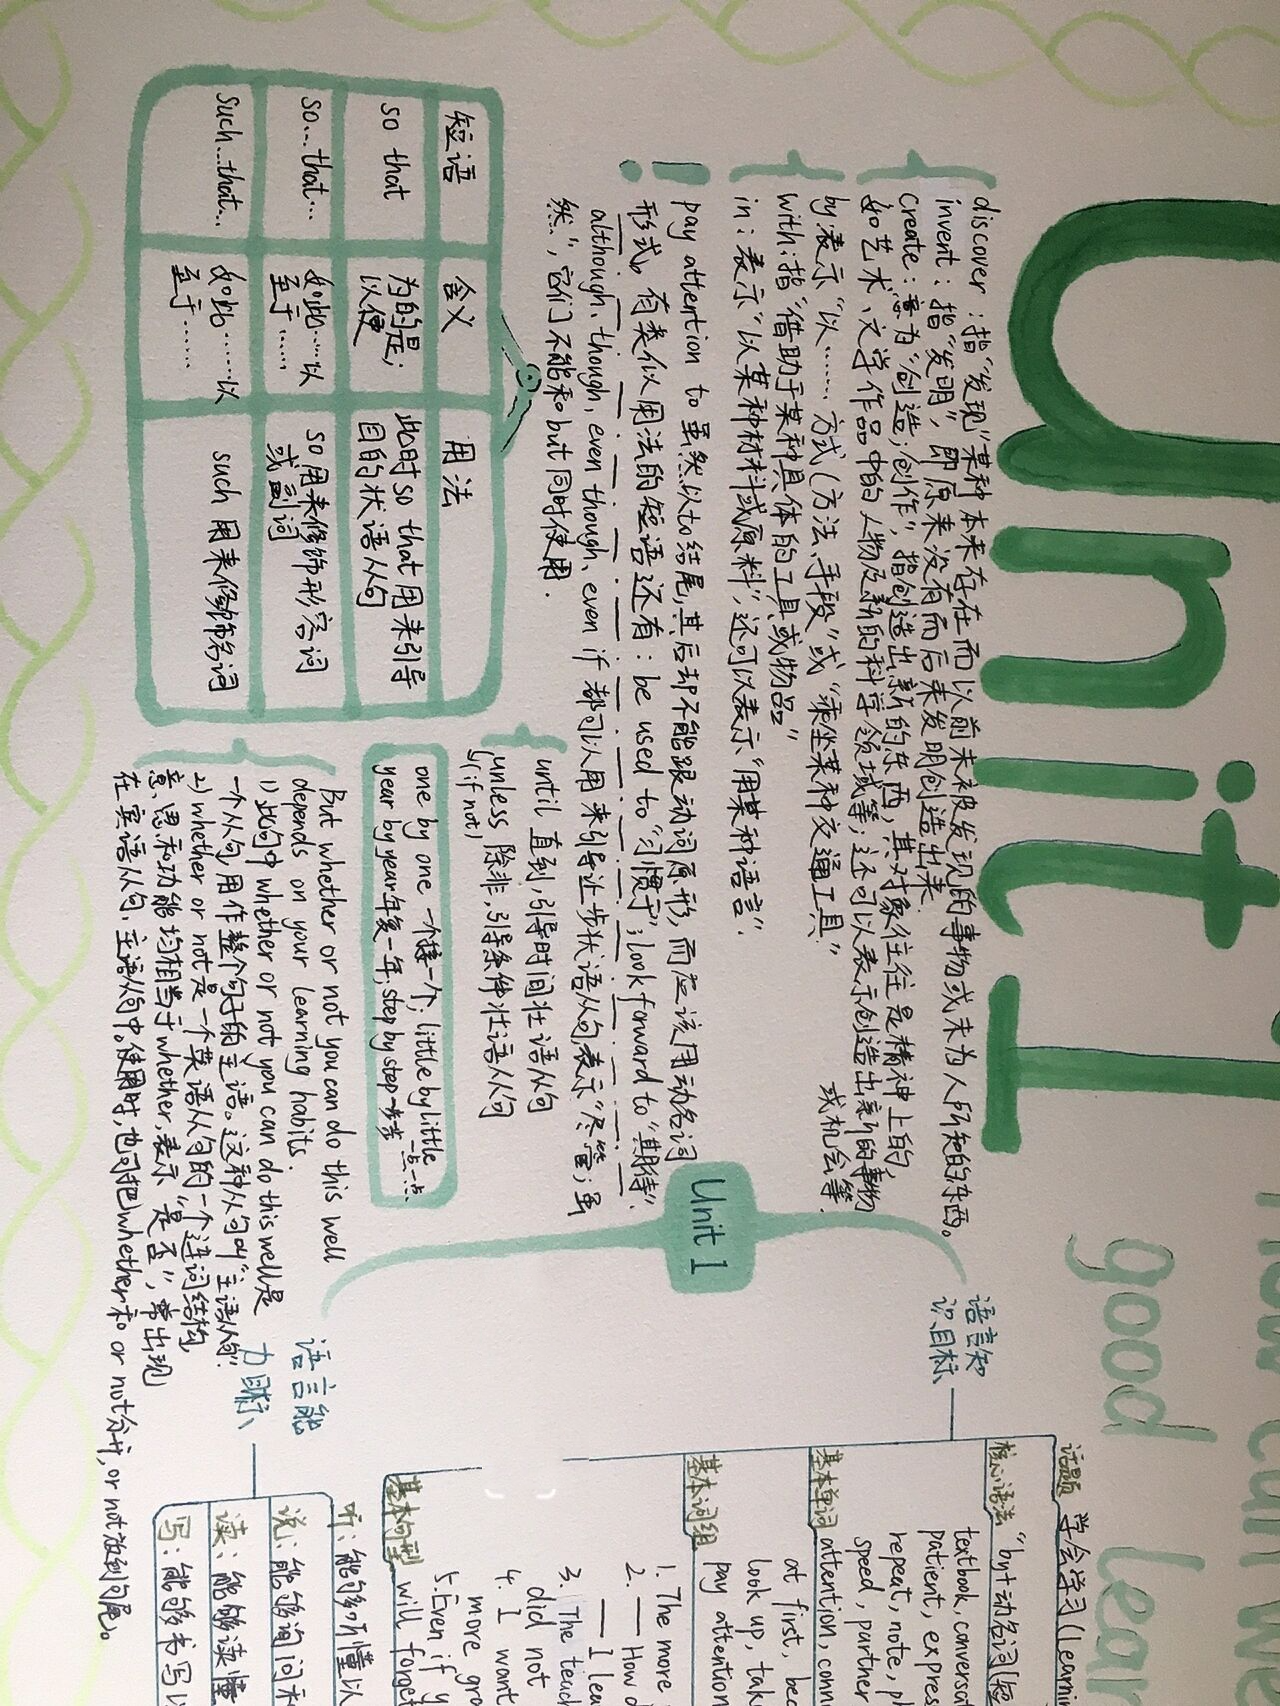 Unit 1
good lear
discover：指"发现"某种本来存在而以前未被发现的事物或未为人所知的东西。
invent：指"发明"，即原来没有而后来发明创造出来.
Create：意为"创造；创作"，指创造出新的东西，其对象往往是精神上的，
如艺术、文学作品中的人物及新的科学领域等；还可以表示创造出新的事物
或机会等.
by：表示"以……方式（方法、手段"或"乘坐某种交通工具"
with：指"借助于某种具体的工具或物品"
in：表示"以某种材料或原料"，还可以表示"用某种语言".
pay attention to 虽然以to结尾，其后却不能跟动词原形，而应该用动名词
形式。有类似用法的短语还有：be used to "习惯于"；look forward to "期待".
although、though、even though、even if 都可以用来引导让步状语从句表示"尽管；虽
然"，它们不能和but同时使用.
until 直到，引导时间状语从句
unless 除非，引导条件状语从句
(if not)
one by one 一个接一个；little by little 一点一点
year by year 年复一年；step by step 一步步
短语 含义 用法
so that 为的是；以便 此时so that用来引导目的状语从句
so…that… 如此……以至于…… so用来修饰形容词或副词
such…that… 如此……以至于…… such用来修饰名词
But whether or not you can do this well
depends on your learning habits.
1)此句中whether or not you can do this well是
一个从句用作整个句子的主语。这种从句叫"主语从句".
2)whether or not是一个英语从句的一个连词结构，
意思和功能均相当于whether，表示"是否"，常出现
在宾语从句，主语从句中。使用时，也可把whether和or not分开，or not放到句尾。
Unit 1
语言知
识目标
话题 学会学习(Learni
核心语法 "by+动名词(短
基本单词 textbook, conversat
patient, express
repeat, note, p
speed, partner
attention, conn
基本词组 at first, bec
look up, tak
pay attention
基本句型 1. The more
2. — How d
— I lea
3. The teac
did not
4. I want
more gra
5. Even if y
will forget
语言能
力目标
听：能够听懂以
说：能够询问和
读：能够读懂
写：能够书写以